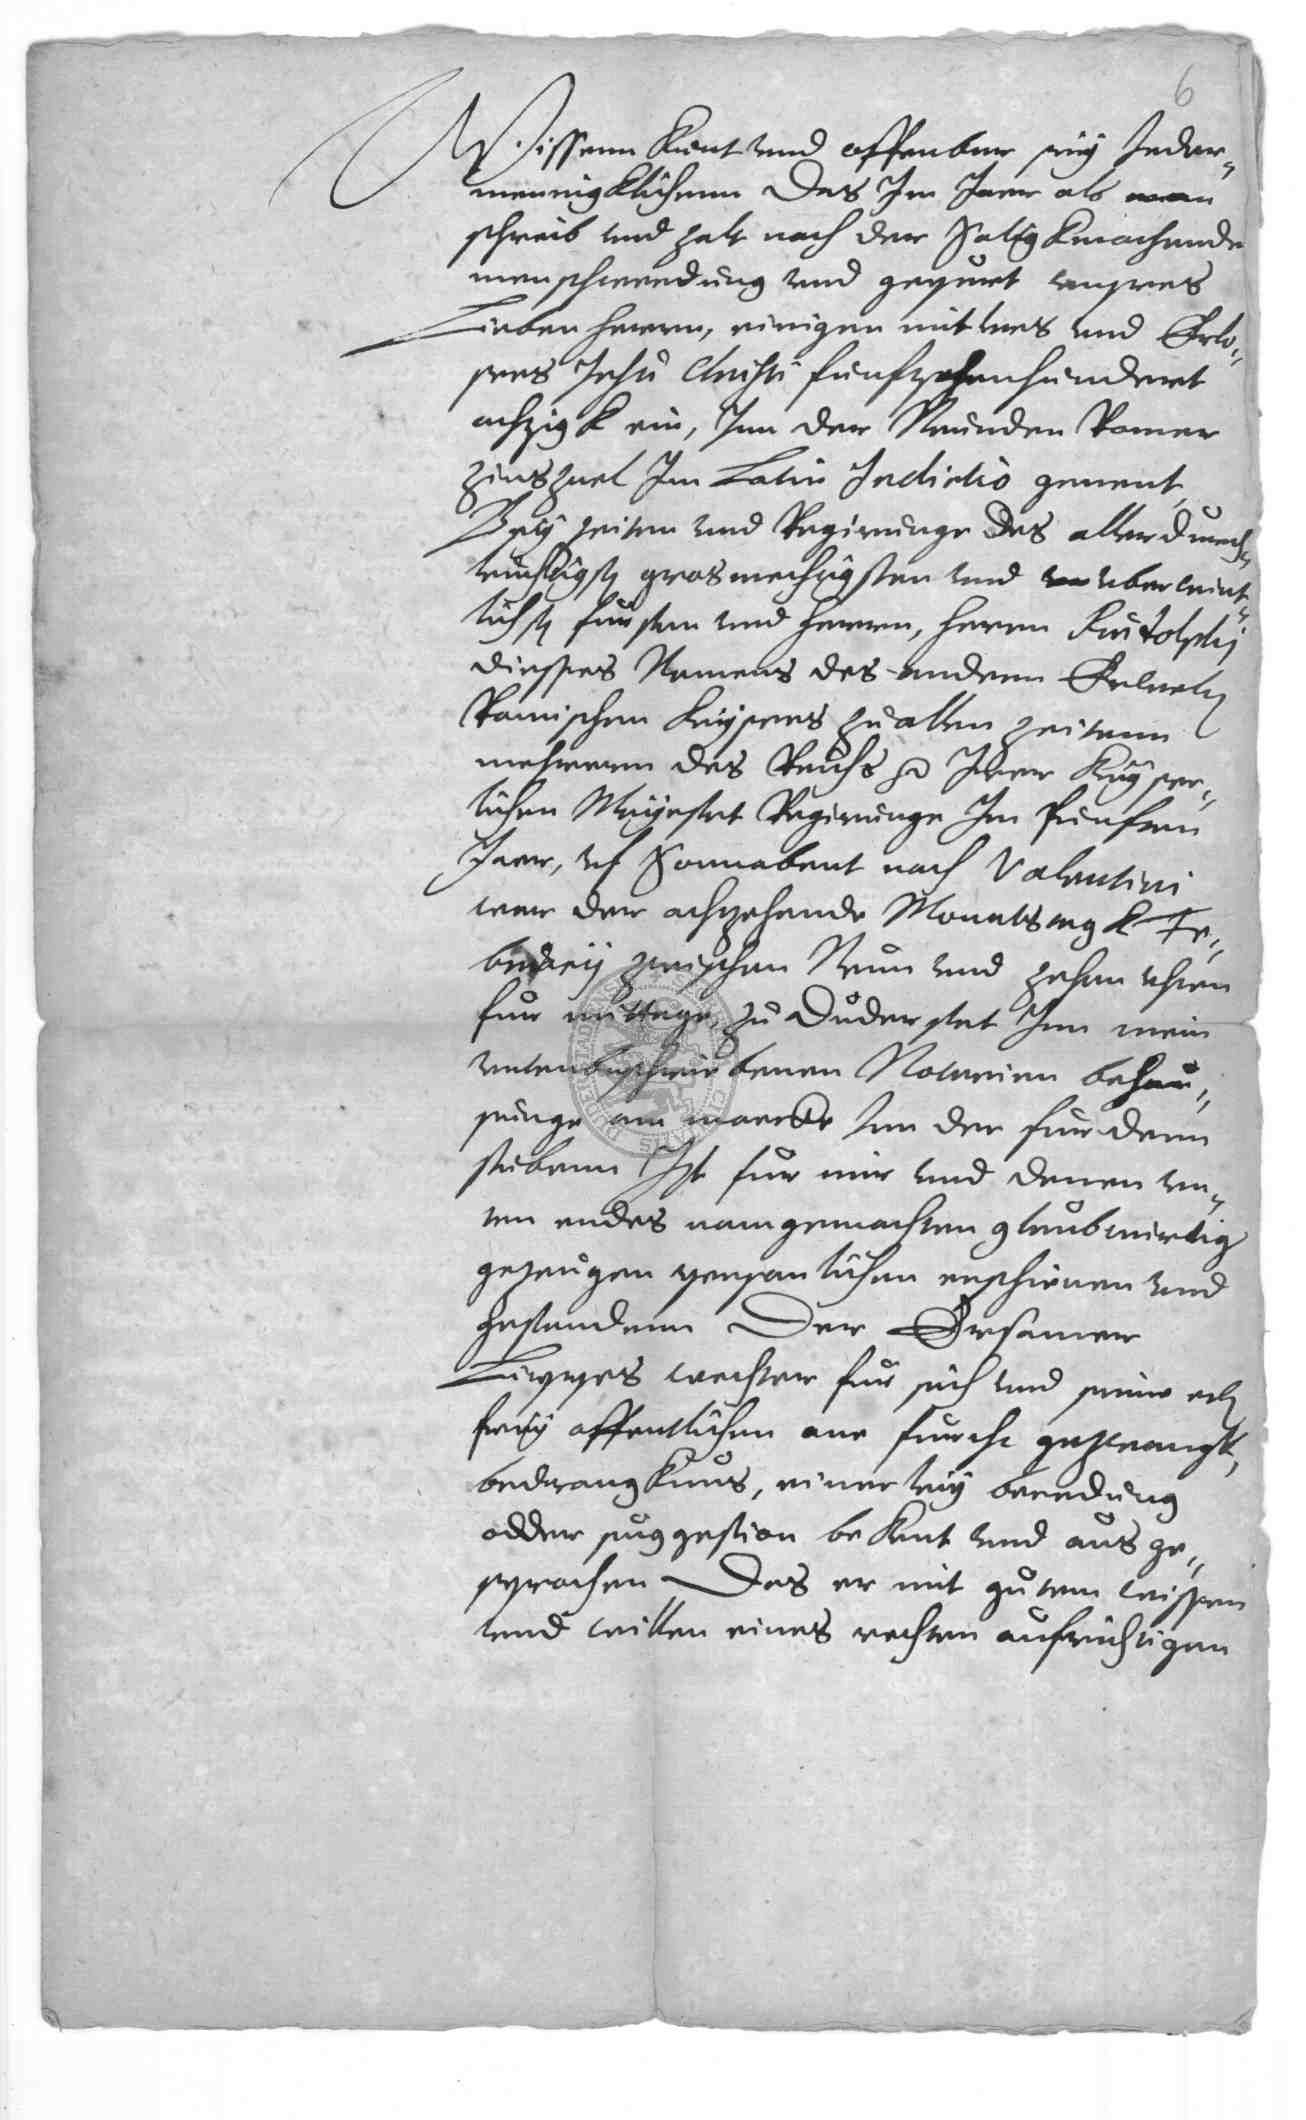 6
Wissenn Kunt vnd offenbar sey Jeder-
menningklichenn Das Im Jaer als man
schreib vnd zalt nach der Seligkmachende
menschwerdung vnd gepurt vnsers
Lieben herrn, einigen mitlers vnd Erlo-
sers Jesu Christi funfftzehenhundert
achzigk ein, Inn der Neunden Romer
zinszael Im Latin Indictio genent
Bey zeiten vnd Regirunge des allerdurch-
leuchtigst grosmechtigsten vnd vnuberwint-
lichst fursten vnd herrn, herrn Rudolphi
diesses Namens des andern Erwelt
Romischen Keysers zu allen zeitenn
mehrern des Reichs Irer Keyser-
lichen Mayestet Regirunge Im funften
Jaer, vf Sonnabent nach Valentini
war der achzehende Monatstagk Fe-
bruarij zwischen Neun vnd zehen vhren
fur mittage, zu Duderstat Inn mein
vntenbeschriebenen Notarien behau-
sunge am marckte Inn der fur dern
stubenn Ist fur mir vnd denen vn-
ten endes namgemachten glaubwirdig
gezeugen personlichen erschienen vnd
gestandenn Der Ersamer
Lippes wechter fur sich vnd seine erb
frey offentlichen ane furcht gezwangk,
bedrangknus, einerley beredung
odder suggestion bekent vnd ausge-
sprochen Das er mit gutem wissen
vnd willen eines rechten aufrichtigen